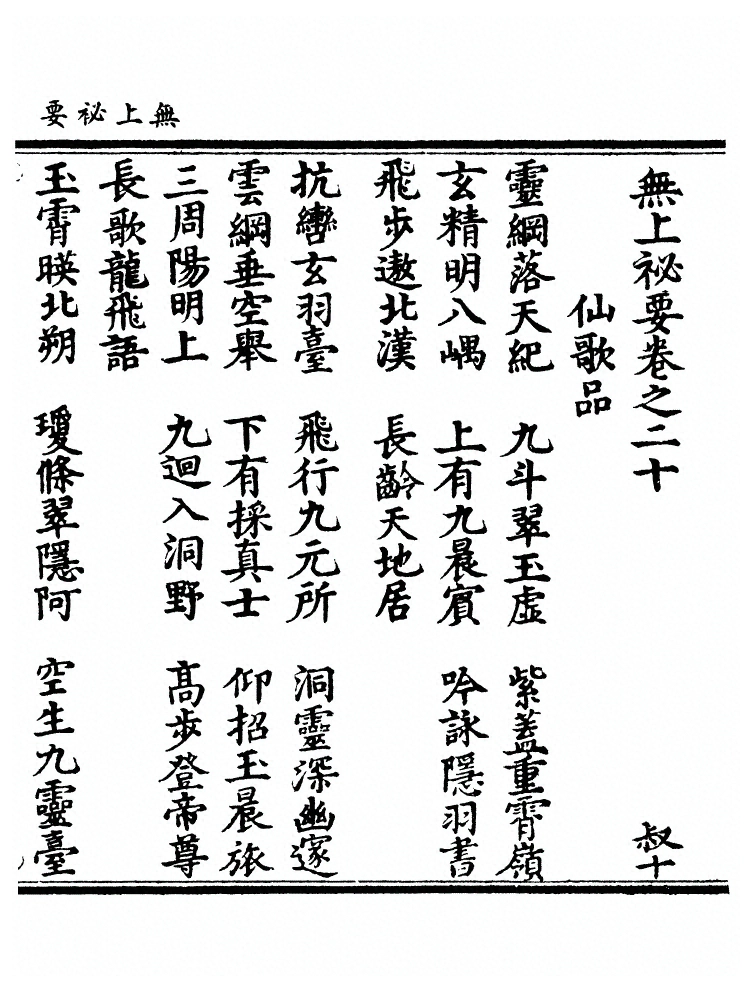 無上祕要
無上祕要卷之二十 叔十
仙歌品
靈綱落天紀 九斗翠玉虛 紫蓋重霄嶺
玄精明八嵎 上有九晨賓 吟詠隱羽書
飛步遨北漢 長齡天地居
抗轡玄羽臺 飛行九元所 洞靈深幽邃
雲綱垂空舉 下有採真士 仰招玉晨旅
三周陽明上 九迴入洞野 高步登帝尊
長歌龍飛語
玉霄暎北朔 瓊條翠隱阿 空生九靈臺